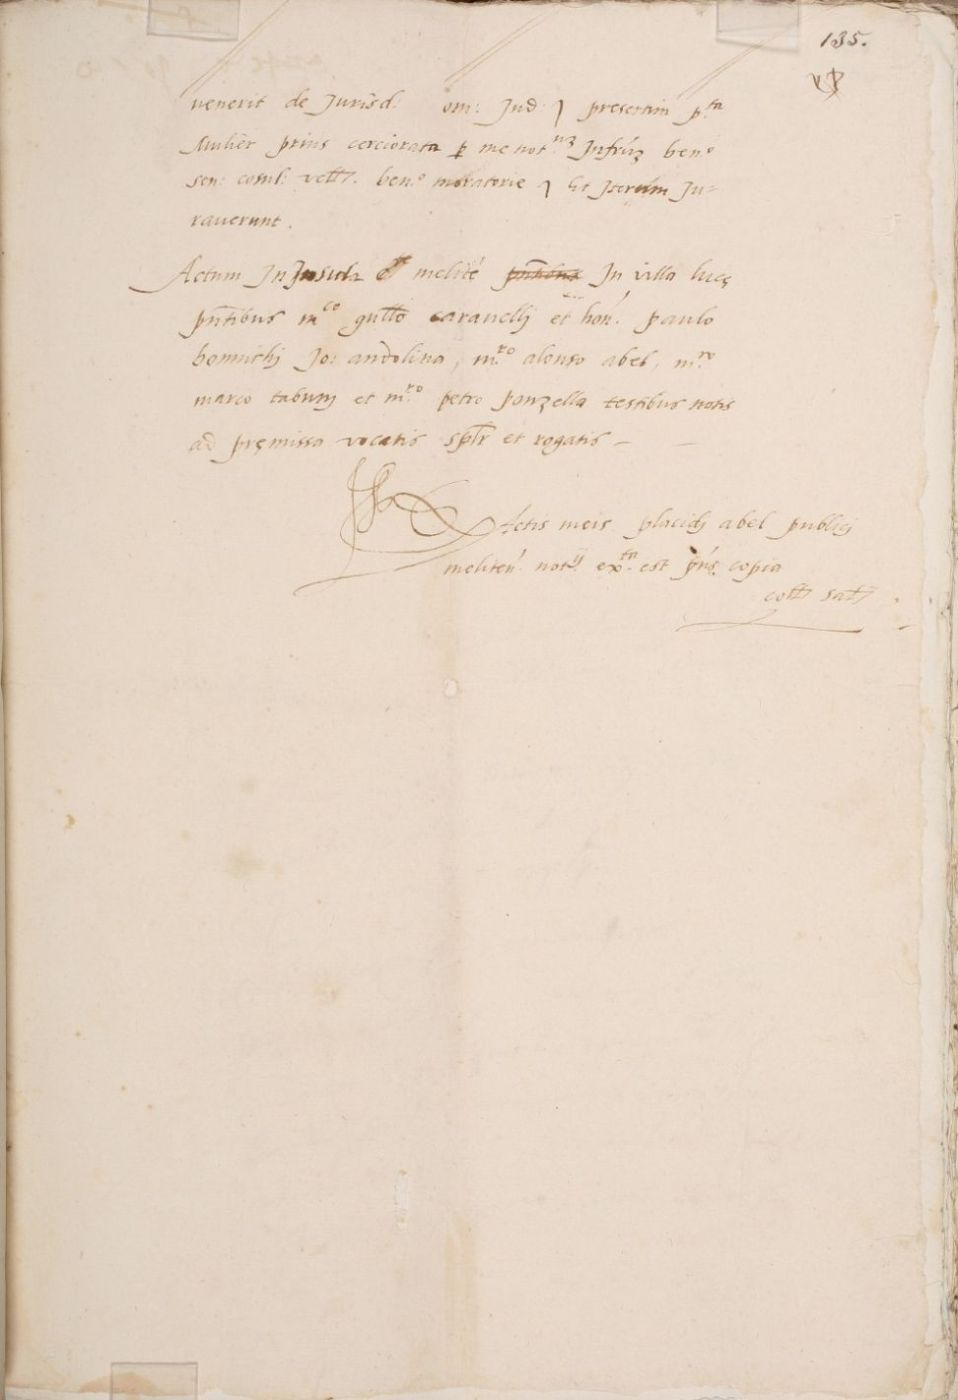 135.
venerit de Jurisd: om: Jud: et presertim p.ta
Mulier prius cerciorata p me not.
sen: cosul: vell. ben.o moratorie et sic Iterum Ju-
raverunt.
Actum In Insula melite pntibus In villa lucę
pntibus m.co gullo caravellj et hon: paulo
bonnichj Jo: andolina, m.ro alonso abel, m.ro
marco tabunj et m.ro petro ponzella testibus notis
ad pręmissa vocatis splr et rogatis –
Actis meis placidj abel publicj
meliten: notij ex.ta est pns copia
coll salv